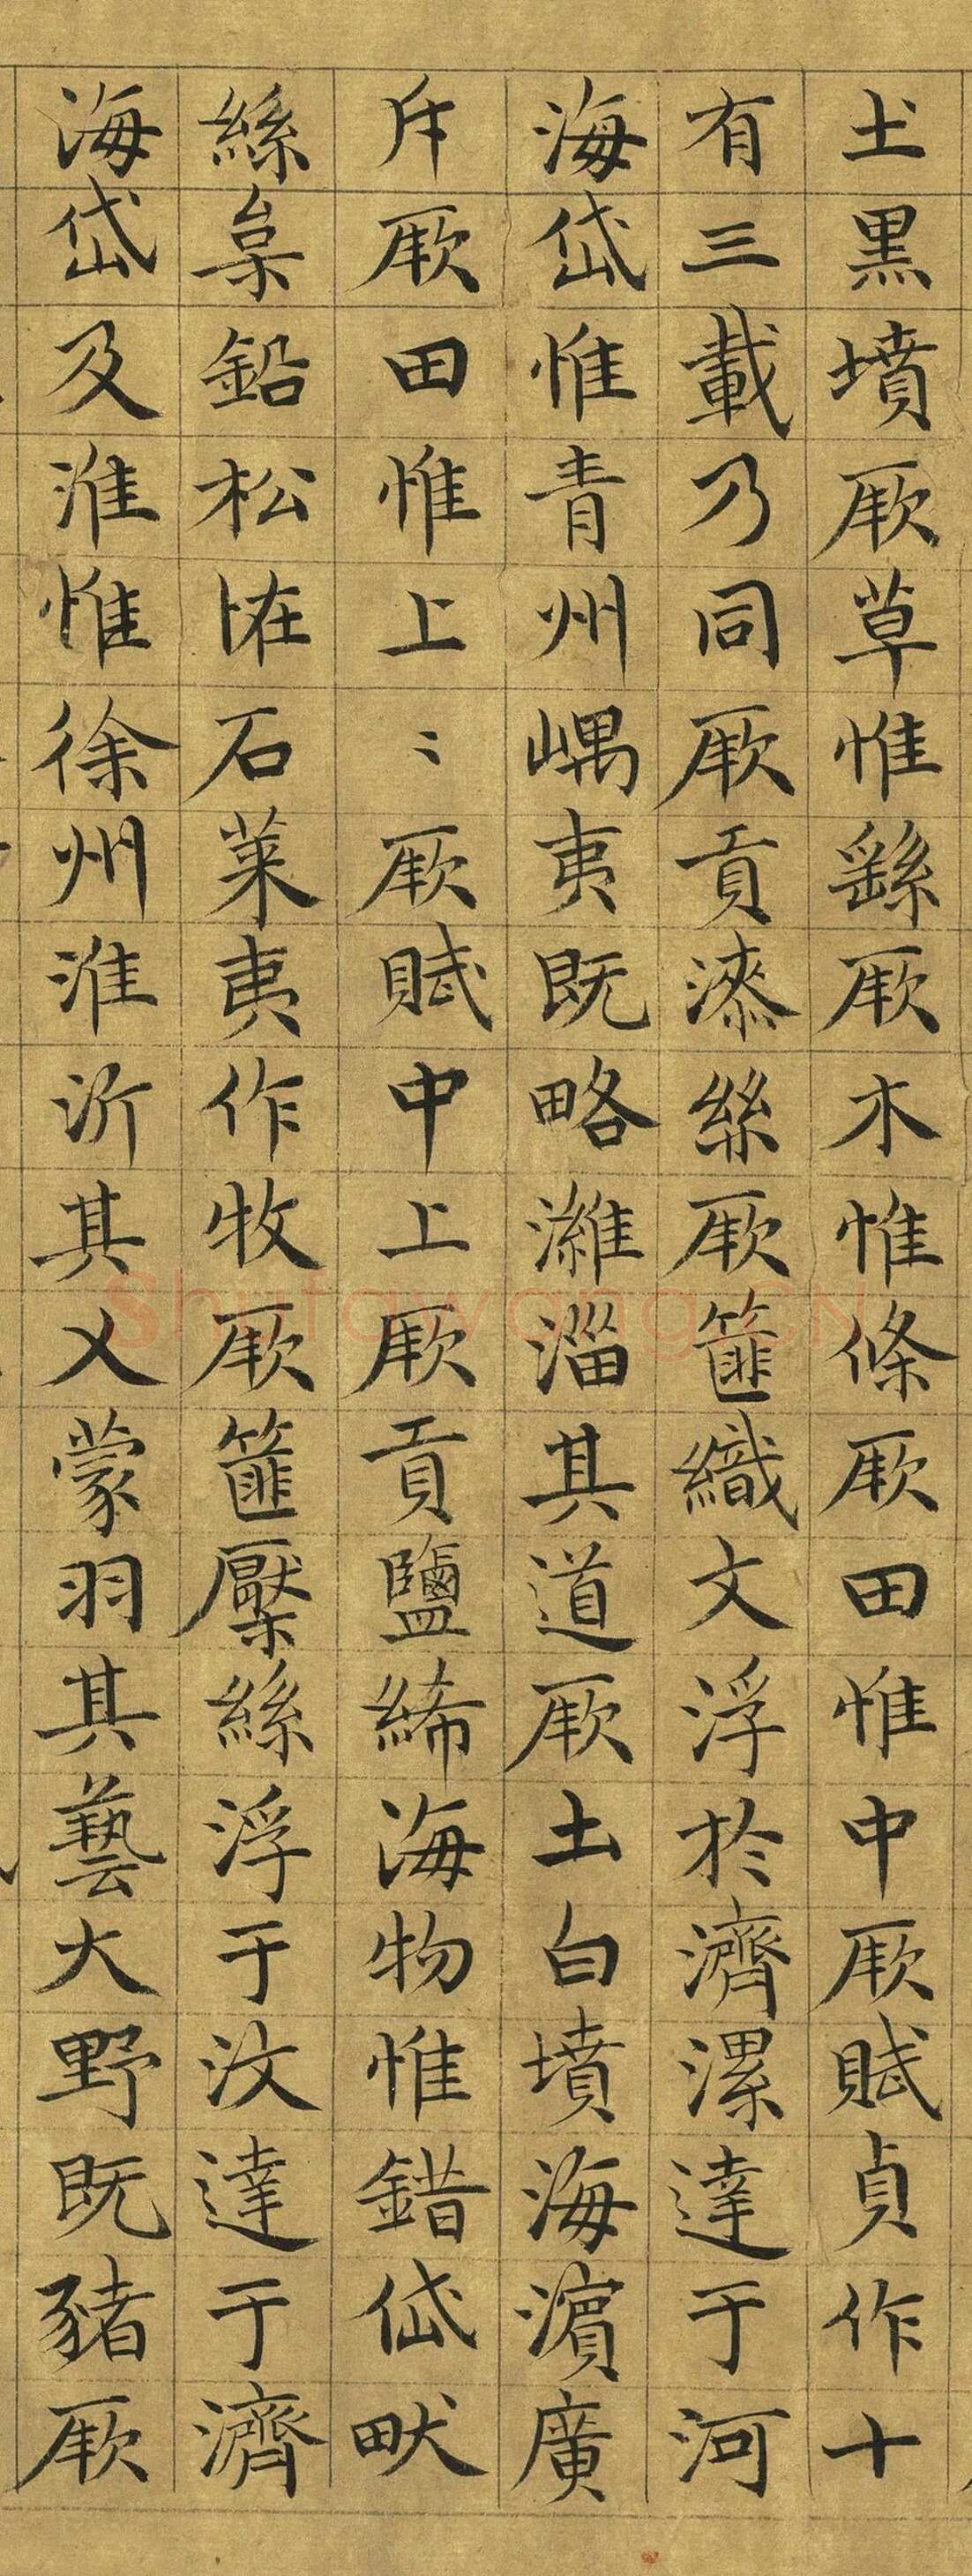 土黑墳厥草惟繇厥木惟條厥田惟中厥賦貞作十
有三載乃同厥貢漆絲厥篚織文浮於濟漯達于河
海岱惟青州嵎夷既略濰淄其道厥土白墳海濱廣
斥厥田惟上〻厥賦中上厥貢鹽絺海物惟錯岱畎
絲枲鉛松怪石萊夷作牧厥篚檿絲浮于汶達于濟
海岱及淮惟徐州淮沂其乂蒙羽其藝大野既豬厥
Shufawang.CN